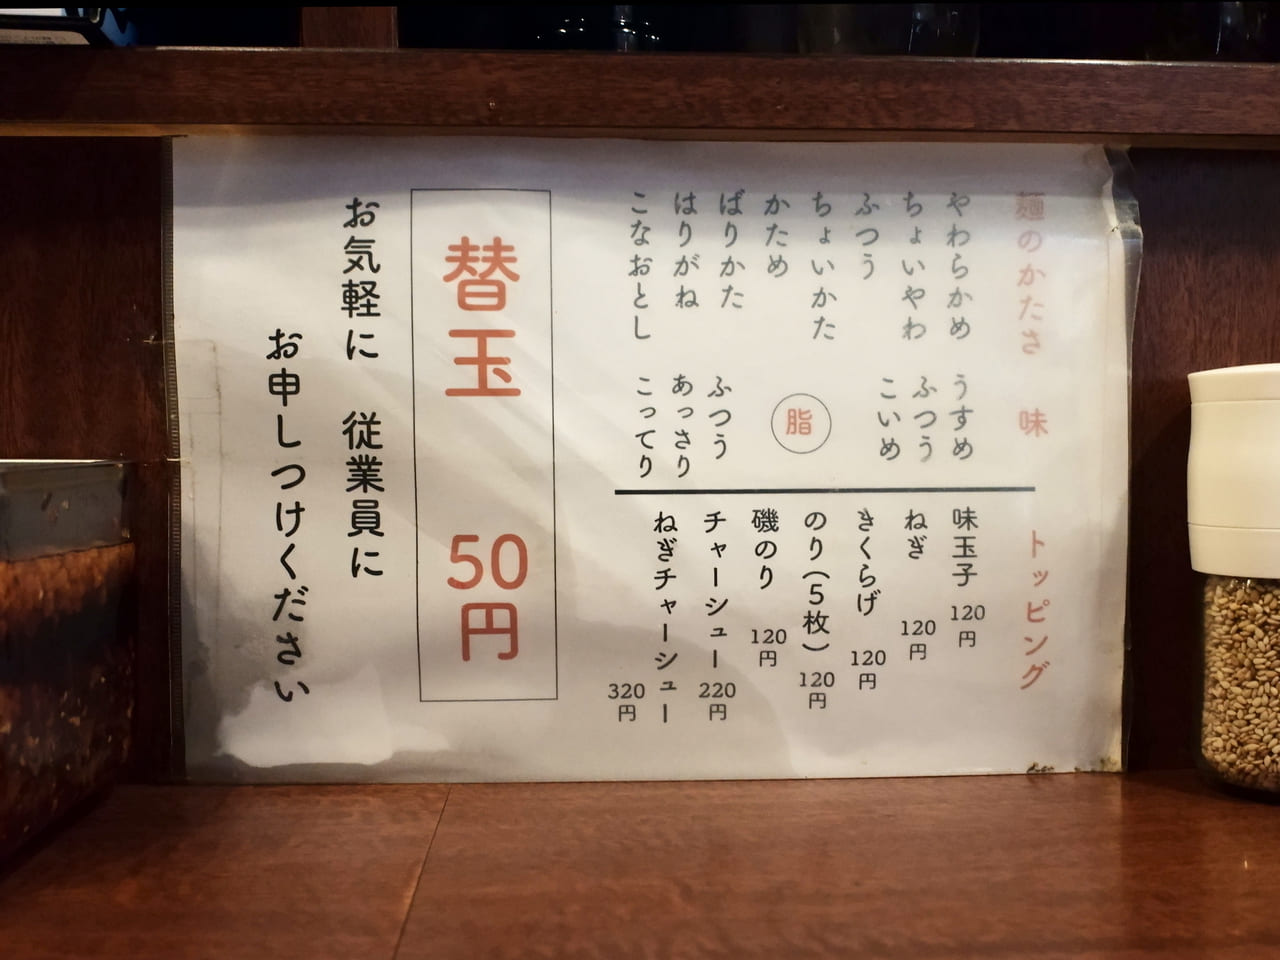 麺のかたさ
やわらかめ
ちょいやわ
ふつう
ちょいかた
かため
ばりかた
はりがね
こなおとし
味
うすめ
ふつう
こいめ
脂
ふつう
あっさり
こってり
トッピング
味玉子 120円
ねぎ 120円
きくらげ 120円
のり(5枚) 120円
磯のり 120円
チャーシュー 220円
ねぎチャーシュー 320円
替玉 50円
お気軽に 従業員に
お申しつけください